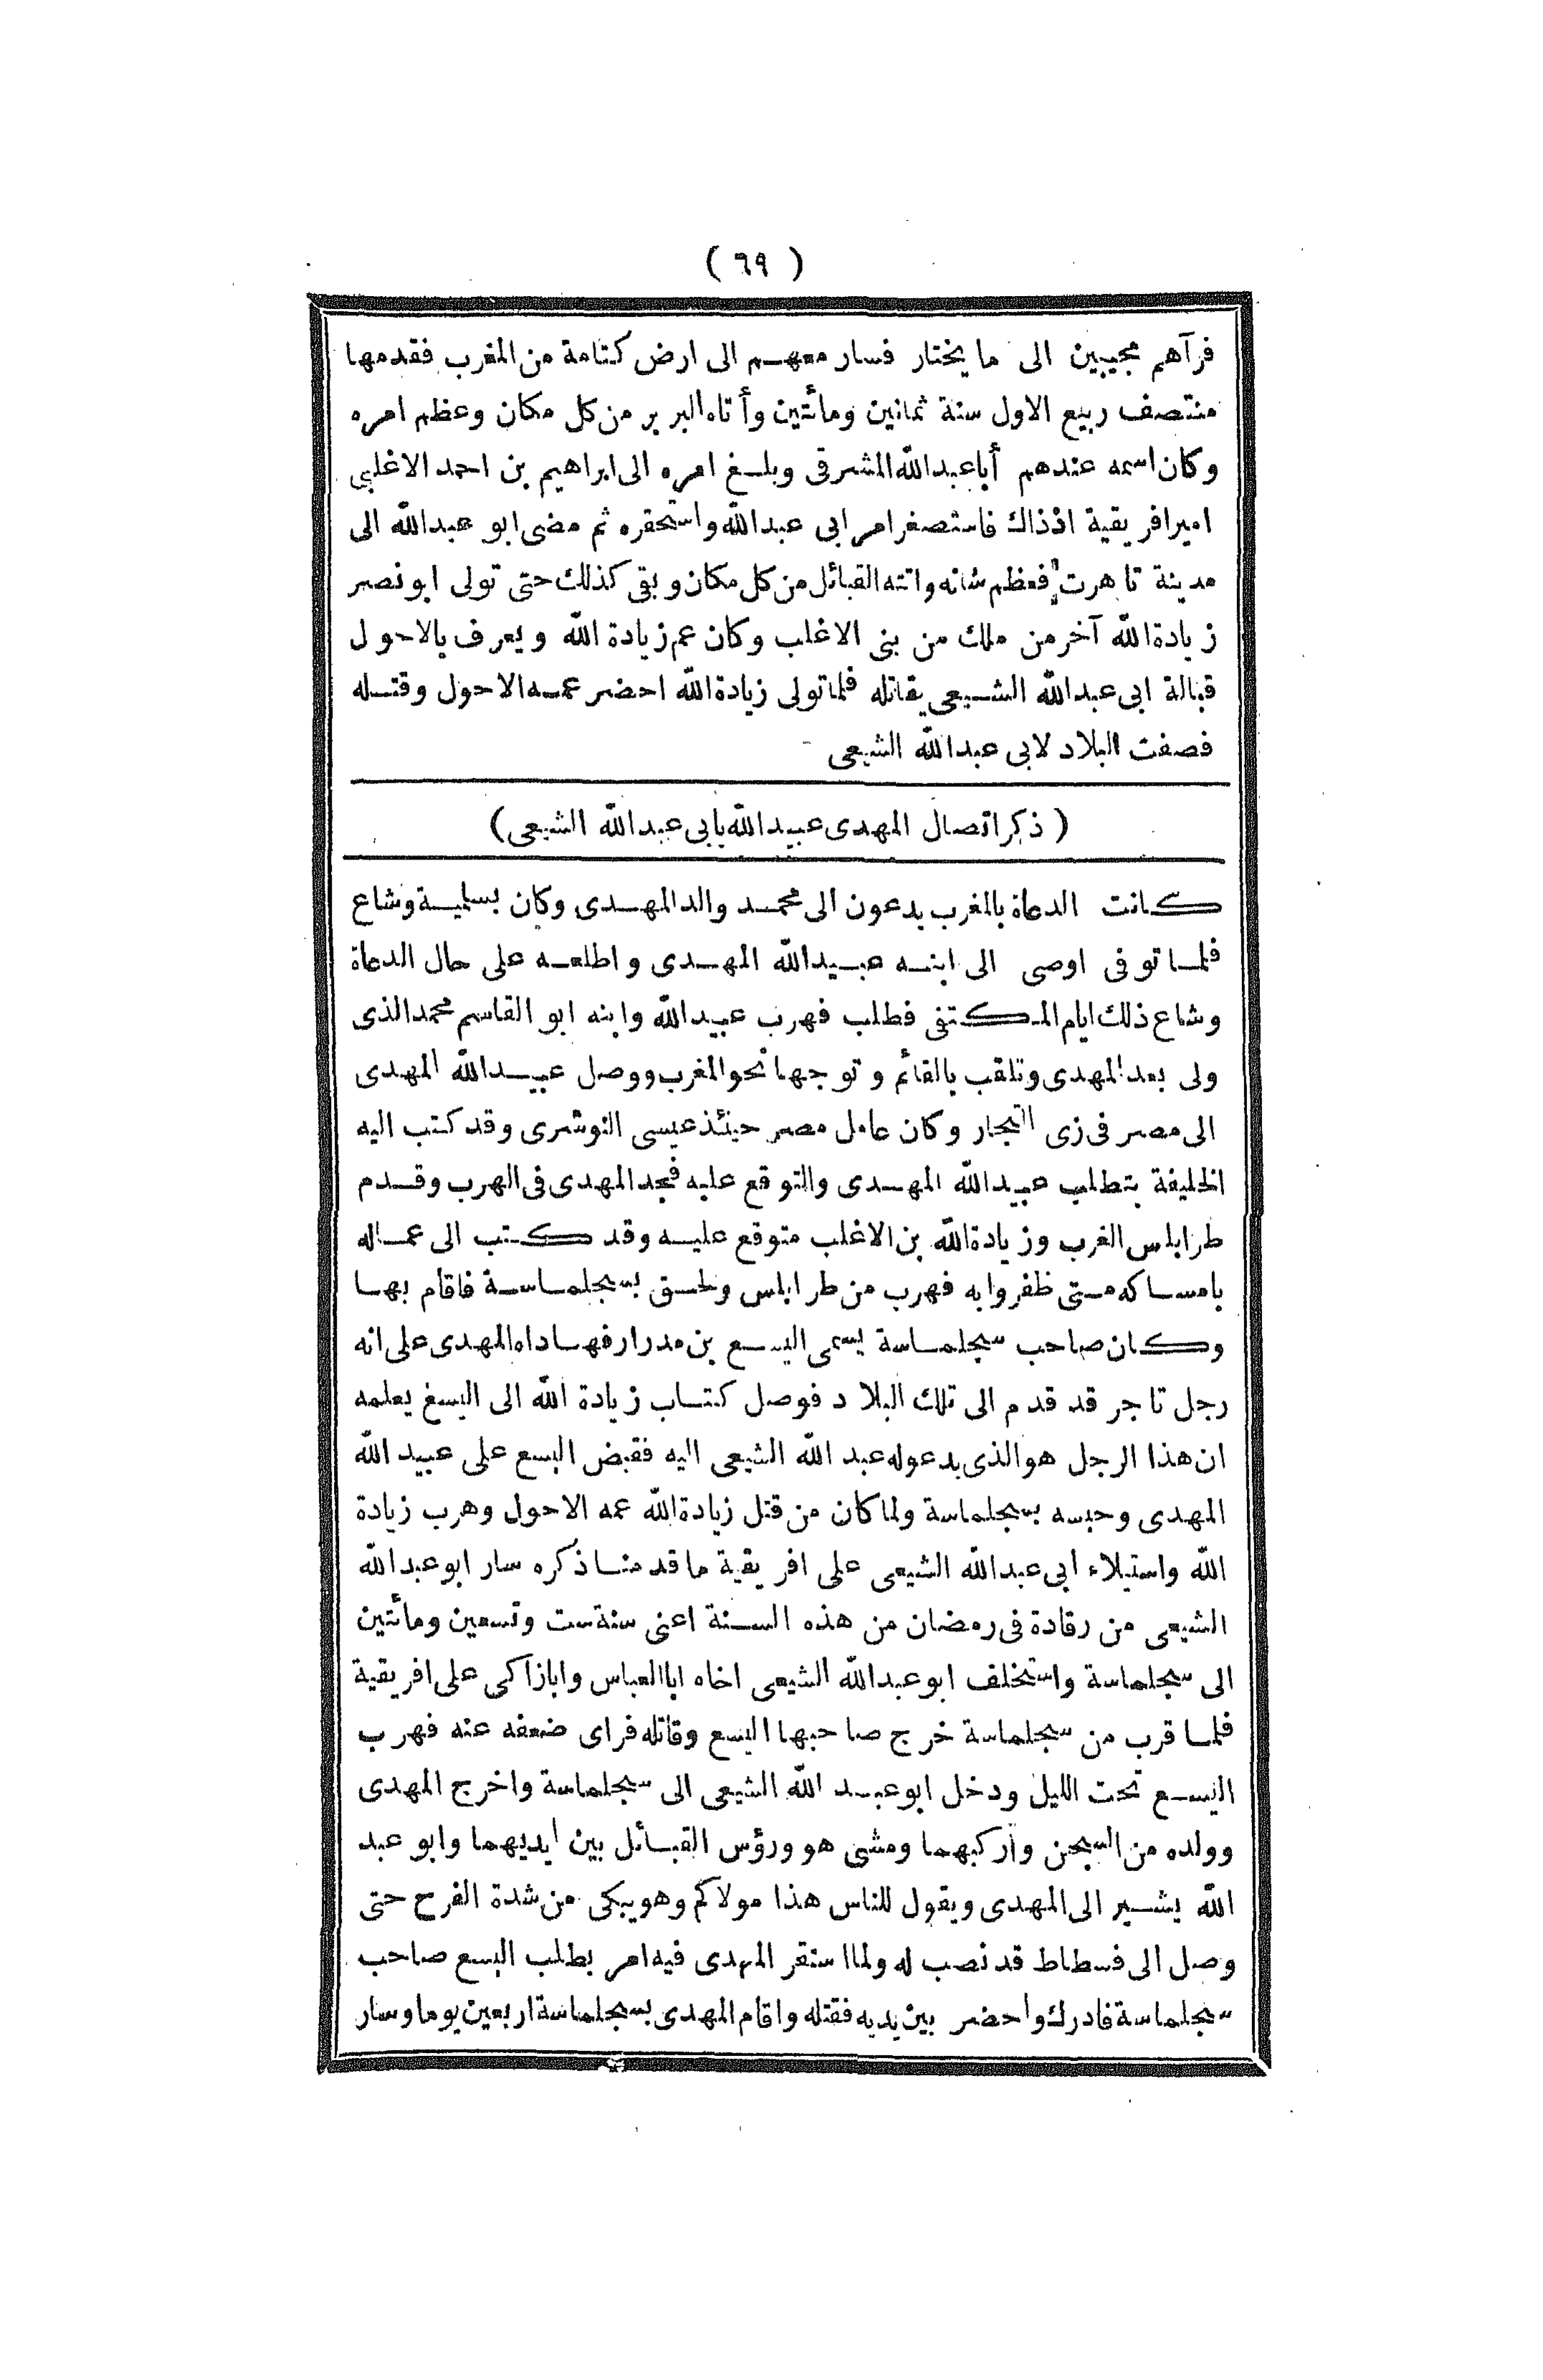 ( ٦٩ )
فرآهم مجيبين الى ما يختار فسار معهم الى ارض كتامة من المغرب فقدمها
منتصف ربيع الاول سنة ثمانين ومائتين وأتاه البربر من كل مكان وعظم امره
وكان اسمه عندهم أبا عبدالله المشرقى وبلغ امره الى ابراهيم بن احمد الاغلبى
امير افريقية اذذاك فاستصغر امر ابى عبدالله واستحقره ثم مضى ابو عبدالله الى
مدينة تاهرت فعظم شانه واتته القبائل من كل مكان وبقى كذلك حتى تولى ابو نصر
زيادة الله آخر من ملك من بنى الاغلب وكان عم زيادة الله ويعرف بالاحول
قبالة ابى عبدالله الشيعى يقاتله فلما تولى زيادة الله احضر عمه الاحول وقتله
فصفت البلاد لابى عبدالله الشيعى
( ذكر اتصال المهدى عبيدالله بابى عبدالله الشيعى)
كانت الدعاة بالمغرب يدعون الى محمد والد المهدى وكان بسلمية وشاع
فلما توفى اوصى الى ابنه عبيدالله المهدى واطلعه على حال الدعاة
وشاع ذلك ايام المكتفى فطلب فهرب عبيدالله وابنه ابو القاسم محمد الذى
ولى بعد المهدى وتلقب بالقائم وتوجها نحو المغرب ووصل عبيدالله المهدى
الى مصر فى زى التجار وكان عامل مصر حينئذ عيسى النوشرى وقد كتب اليه
الخليفة بتطلب عبيدالله المهدى والتوقع عليه فجد المهدى فى الهرب وقدم
طرابلس الغرب وزيادة الله بن الاغلب متوقع عليه وقد كتب الى عماله
بامساكه متى ظفروا به فهرب من طرابلس ولحق بسجلماسة فاقام بها
وكان صاحب سجلماسة يسمى اليسع بن مدرار فهاداه المهدى على انه
رجل تاجر قد قدم الى تلك البلاد فوصل كتاب زيادة الله الى اليسغ يعلمه
ان هذا الرجل هو الذى يدعو له عبد الله الشيعى اليه فقبض اليسع على عبيد الله
المهدى وحبسه بسجلماسة ولما كان من قتل زيادة الله عمه الاحول وهرب زيادة
الله واستيلاء أبى عبدالله الشيعى على افريقية ما قدمنا ذكره سار ابو عبدالله
الشيعى من رقادة فى رمضان من هذه السنة اعنى سنة ست وتسعين ومائتين
الى سجلماسة واستخلف ابو عبدالله الشيعى اخاه ابا العباس وابا زاكى على افريقية
فلما قرب من سجلماسة خرج صاحبها اليسع وقاتله فراى ضعفه عنه فهرب
اليسع تحت الليل ودخل ابو عبد الله الشيعى الى سجلماسة واخرج المهدى
وولده من السجن واركبهما ومشى هو ورؤس القبائل بين أيديهما وابو عبد
الله يشير الى المهدى ويقول للناس هذا مولاكم وهو يبكى من شدة الفرح حتى
وصل الى فسطاط قد نصب له ولما استقر المهدى فيه امر بطلب اليسع صاحب
سجلماسة فادرك واحضر بين يديه فقتله واقام المهدى بسجلماسة اربعين يوما وسار